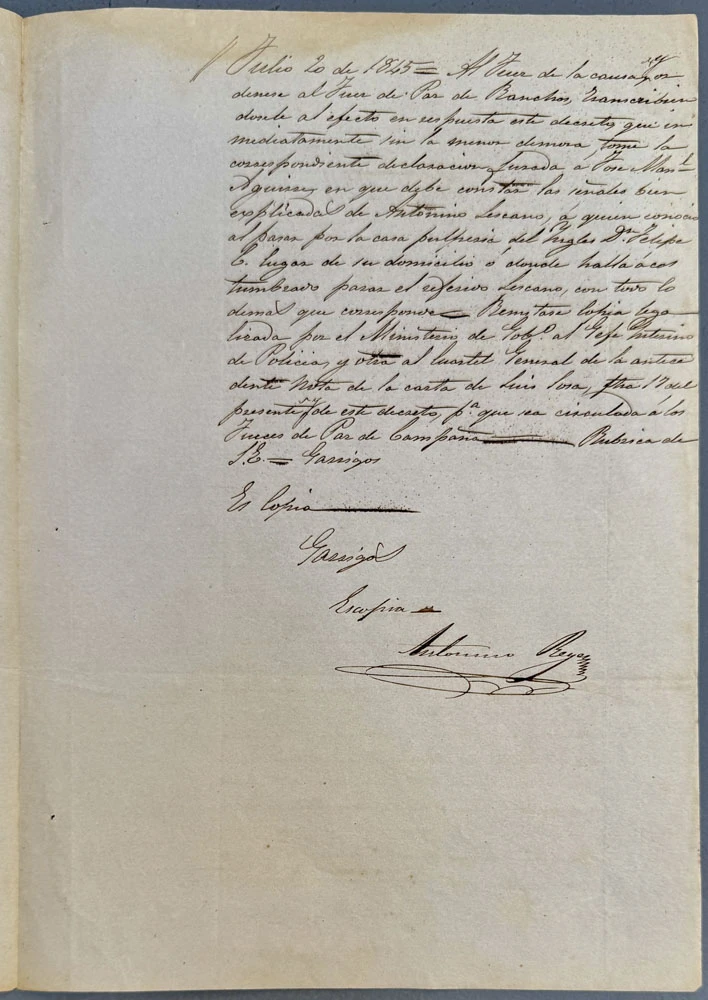 Julio 20 de 1845 = Al Juez de la causa, y or
denese al Juez de Paz de Ranchos, transcribien
dosele al efecto en respuesta este decreto, que in
mediatamente sin la menor demora, tome la
correspondiente declaracion jurada á Jose Manl
Aguirre, en que debe constar las señales bien
explicadas de Antonino Lescano, á quien conocio
al pasar por la casa pulperia del Ingles Dn Felipe
C. lugar de su domicilio ó donde halla acos
tumbrado parar el referido Lescano, con todo lo
demas que corresponde — Remitase copia lega
lizada por el Ministerio de Gobo. al Gefe Interino
de Policia, y otra al Cuartel General de la antece
dente Nota de la carta de Luis Sosa, fha 17 del
presente, y de este decreto, pa. que sea circulada á los
Jueces de Paz de Campaña — Rubrica de
S.E. = Garrigos
Es Copia —
Garrigos
Es copia —
Antonino Reyes